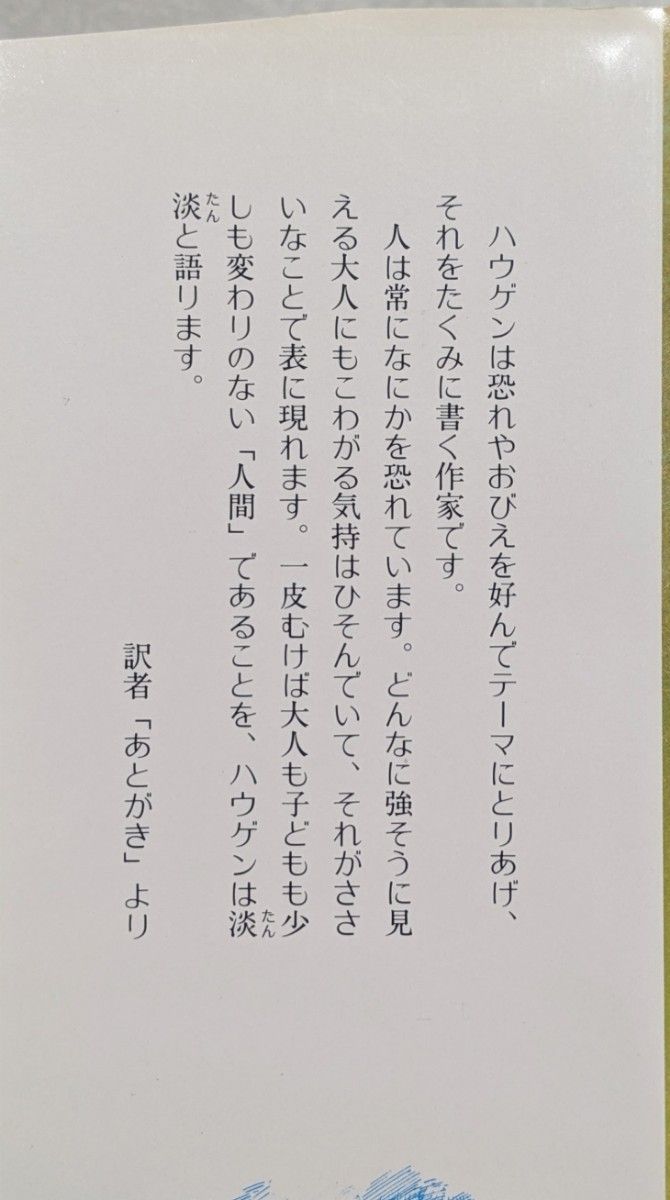 ハウゲンは恐れやおびえを好んでテーマにとりあげ、
それをたくみに書く作家です。
人は常になにかを恐れています。どんなに強そうに見
える大人にもこわがる気持はひそんでいて、それがささ
いなことで表に現れます。一皮むけば大人も子どもも少
しも変わりのない「人間」であることを、ハウゲンは淡たん
淡たんと語ります。
訳者「あとがき」より